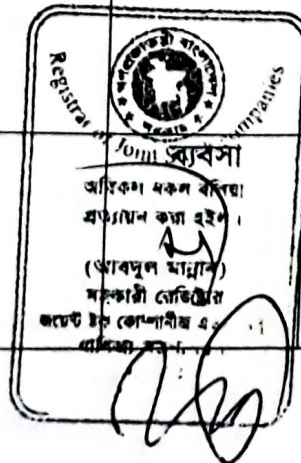 গণপ্রজাতন্ত্রী বাংলাদেশ
সরকার
Registrar of Joint Companies
ব্যবসা
অবিকল নকল বলিয়া
প্রত্যায়ন করা হইল।
(আবদুল মান্নান)
সহকারী রেজিস্ট্রার
জয়েন্ট ষ্টক কোম্পানীজ এ